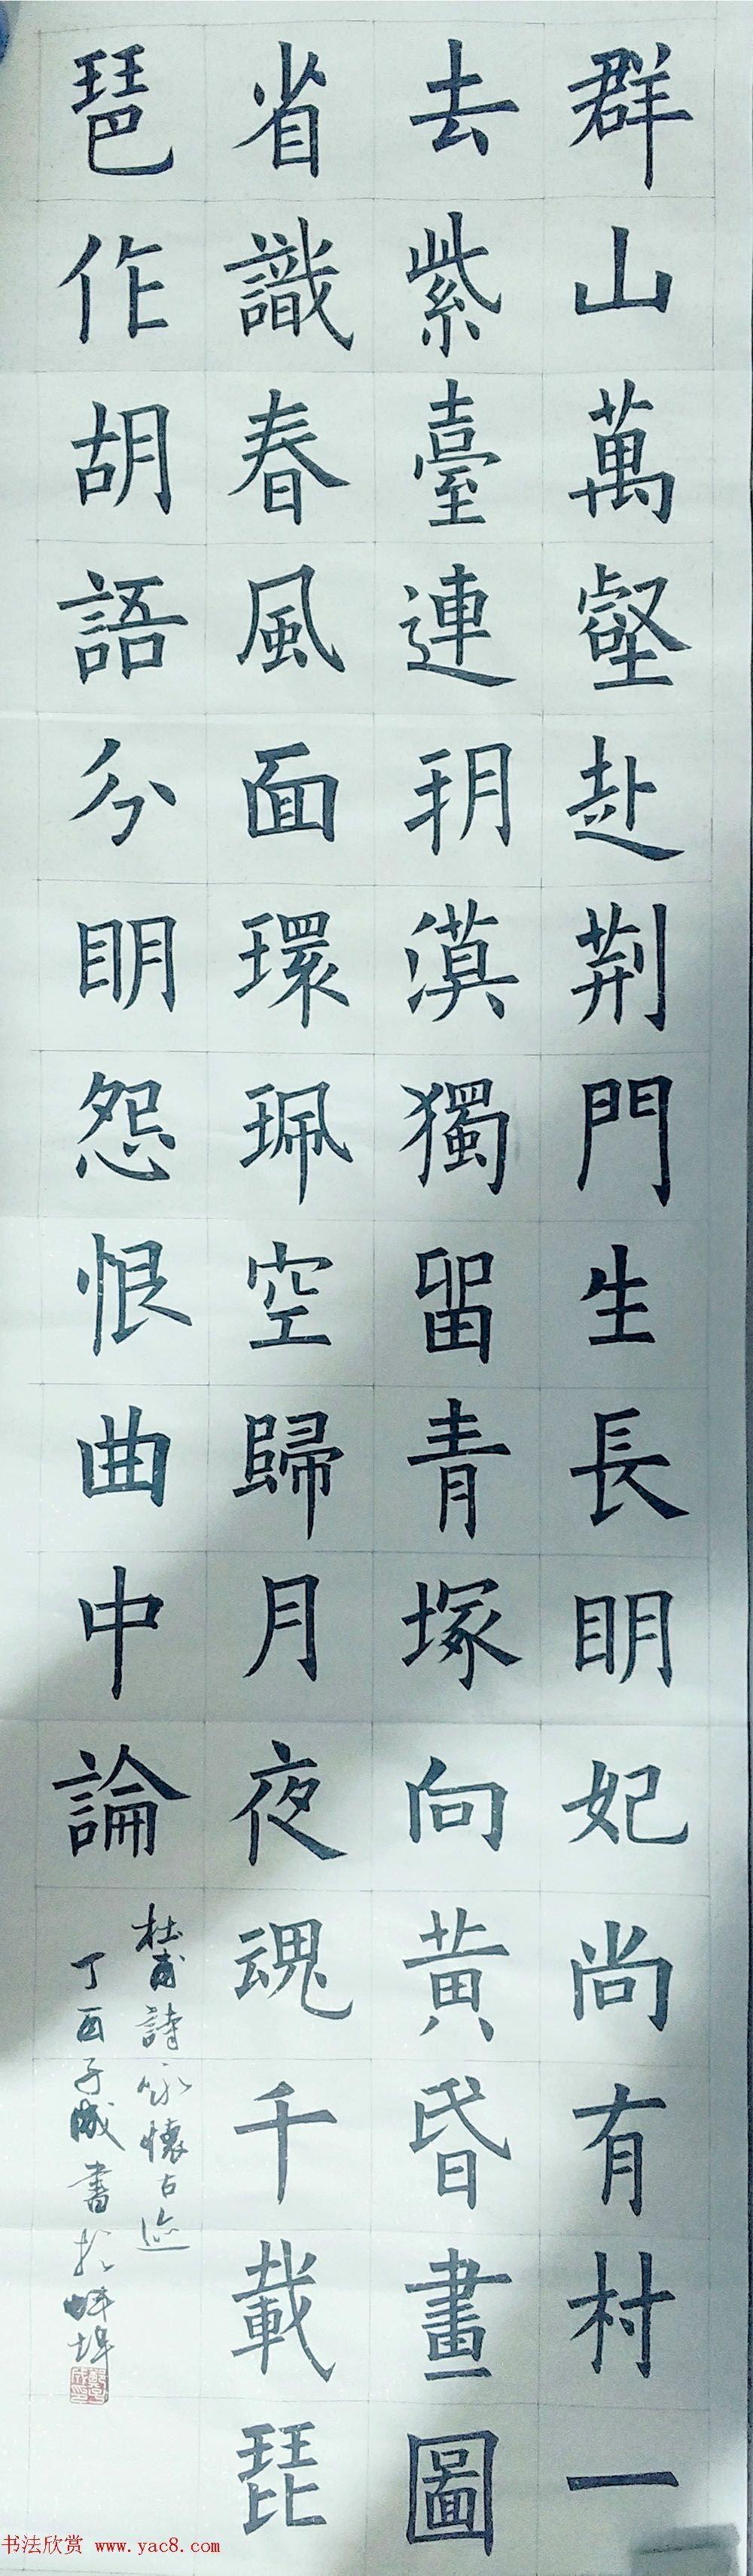 群山萬壑赴荆門生長眀妃尚有村一
去紫臺連朔漠獨留青塚向黄昏畫圖
省識春風面環珮空歸月夜魂千載琵
琶作胡語分眀怨恨曲中論
杜甫詩咏懷古迹
丁酉子成書於蚌埠
书法欣赏 www.yac8.com